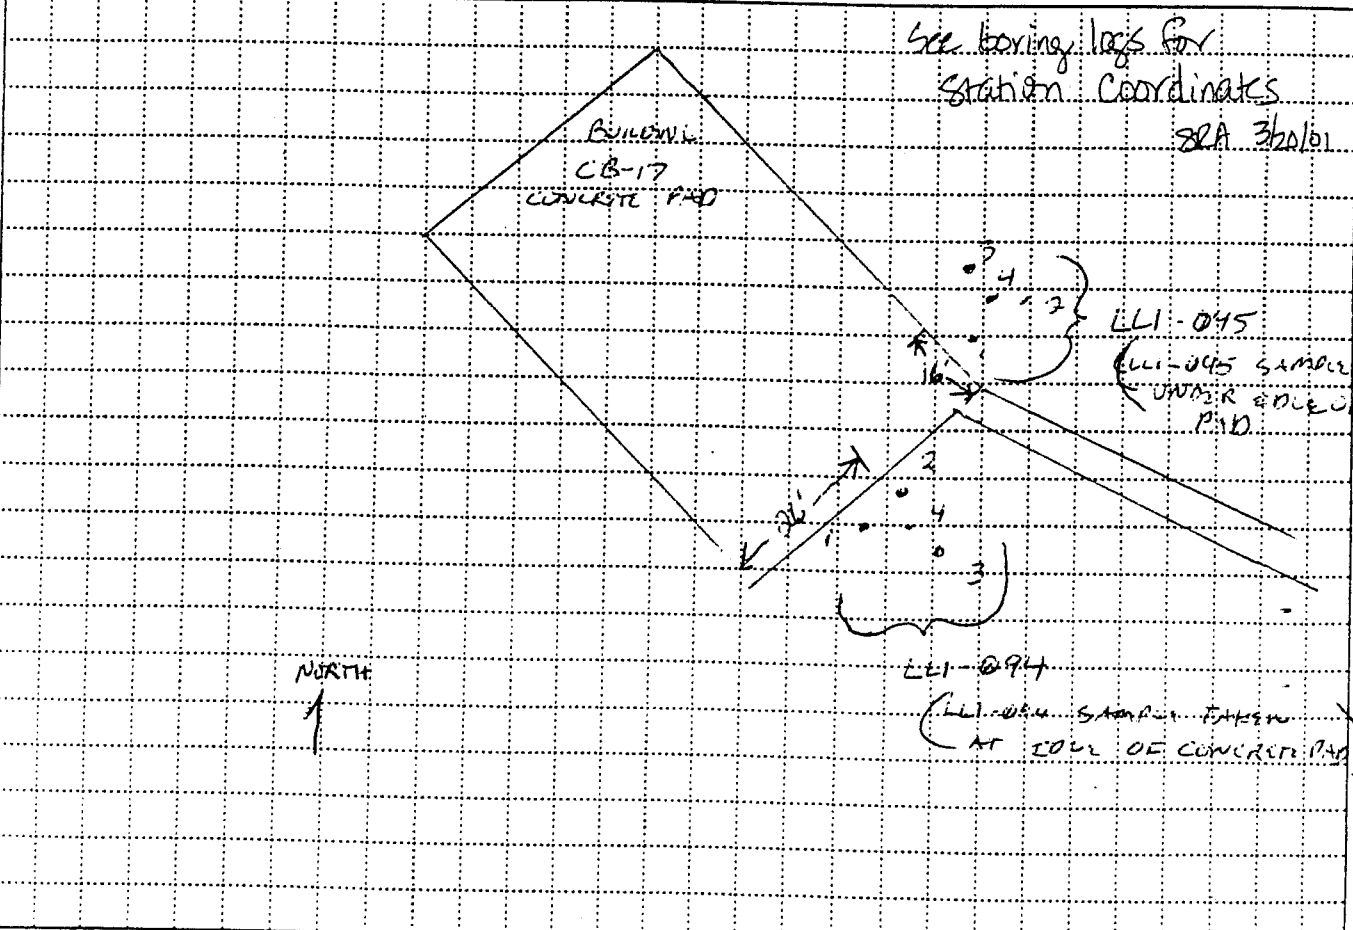 See boring logs for
Station Coordinates
SRA 3/20/01
BUILDING
CB-17
CONCRETE PAD
3
4
2
1
LL1-045
16'
(LL1-045 SAMPLE
UNDER EDGE O
PAD
2
26'
4
1
3
LL1-094
NORTH
(LL1-094 SAMPLE TAKEN
AT EDGE OF CONCRETE PAD